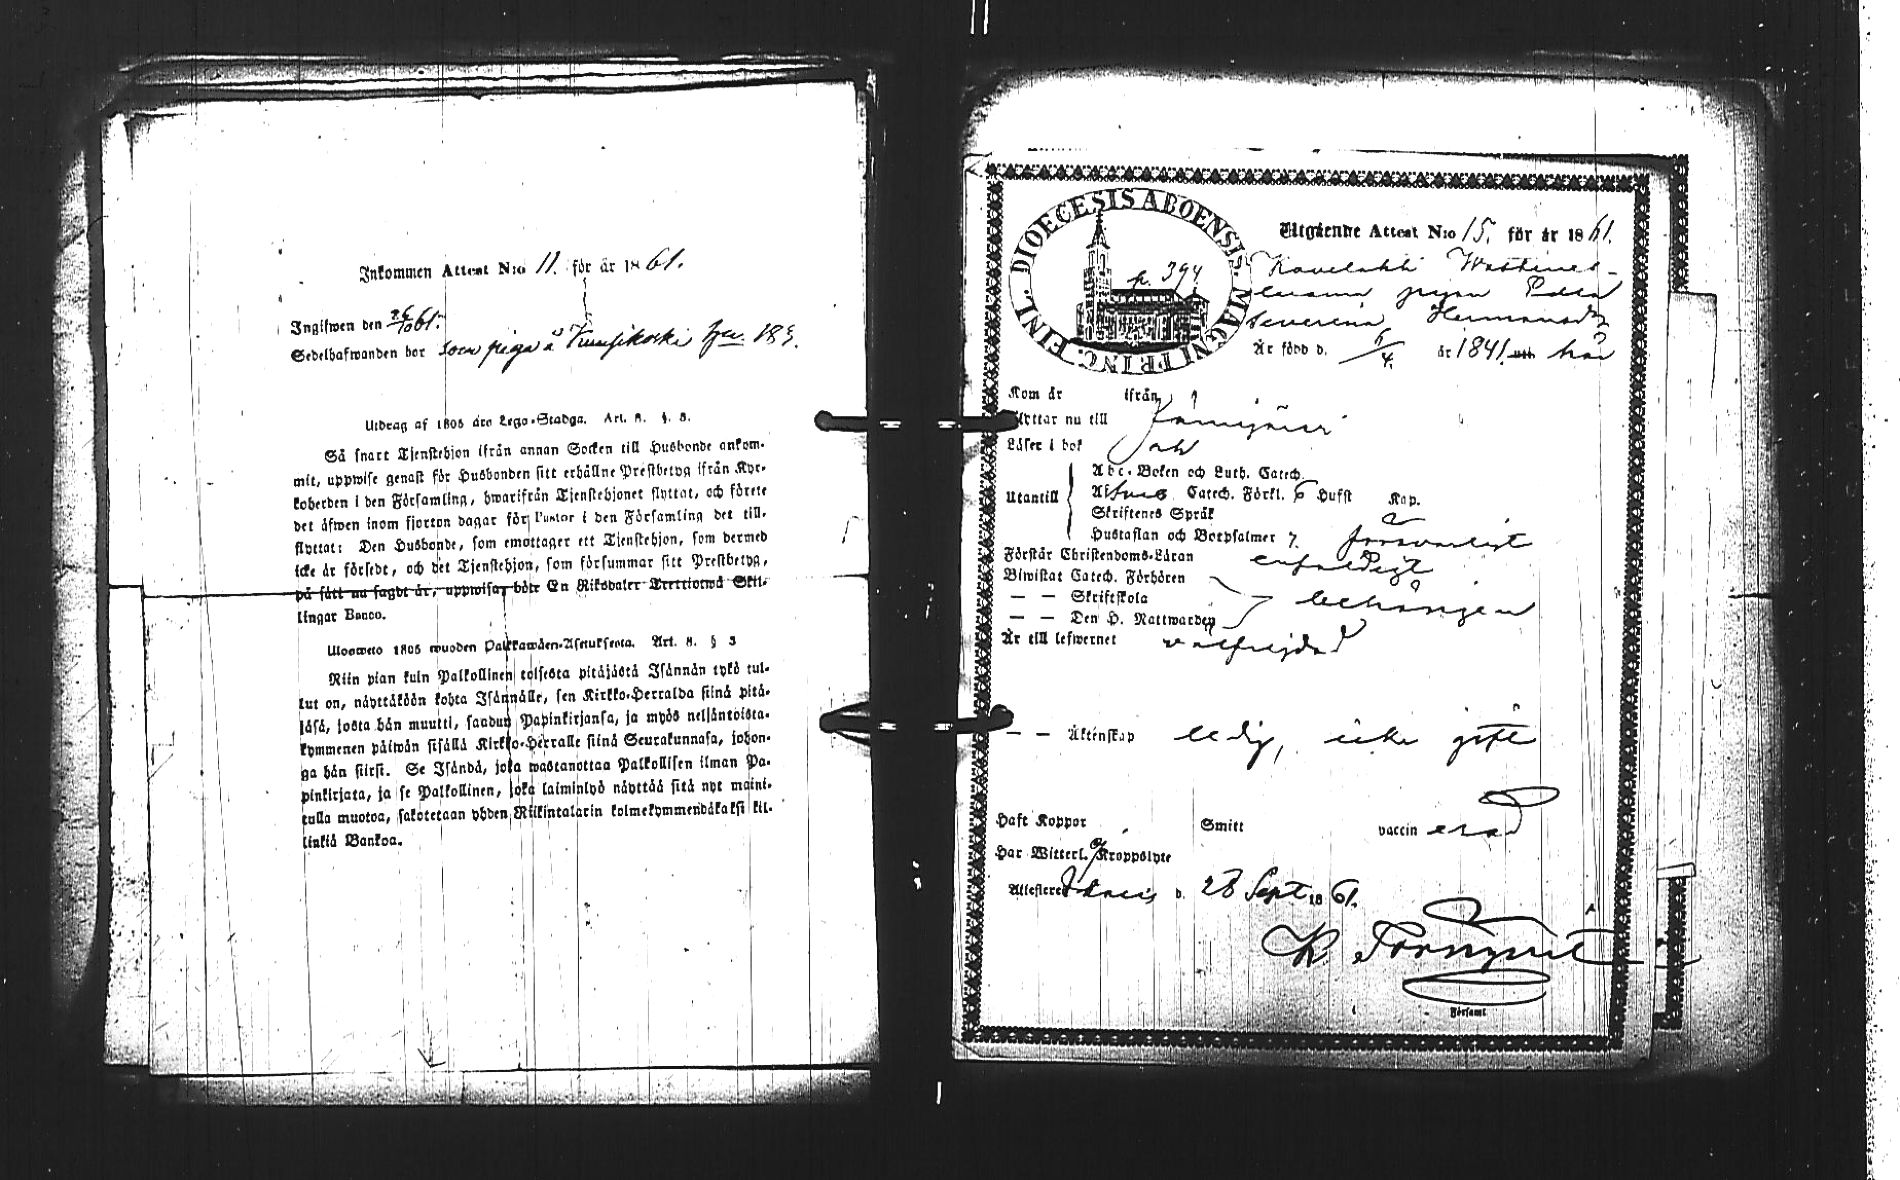 Inkommen Attest N:o 11. för år 1861.
Ingifwen den 26/10 61.
Sedelhafwanden bor som piga å
Utdrag af 1805 års Lego-Stadga. Art. 8. §. 3.
Så snart Tjenstehjon ifrån annan Socken till Husbonde ankom-
mit, uppwise genast för Husbonden sitt erhållne Prestbetyg ifrån Kyr-
koherden i den Församling, hwarifrån Tjenstehjonet flyttat, och förete
det äfwen inom fjorton dagar för Pastor i den Församling det till-
flyttat: Den Husbonde, som emottager ett Tjenstehjon, som dermed
icke är försedt, och det Tjenstehjon, som försummar sitt Prestbetyg,
på sätt nu sagdt är, uppwisa, böte En Riksdaler Trettiotwå Skil-
lingar Banco.
Ulosweto 1805 wuoden Palkkawäen-Asetuksesta. Art. 8. § 3
Niin pian kuin Palkollinen toisesta pitäjästä Isännän tykö tul-
lut on, näyttäköön kohta Isännälle, sen Kirkko-Herralda siinä pitä-
jäsä, josta hän muutti, saadun Papinkirjansa, ja myös neljäntoista-
kymmenen päiwän sisällä Kirkko-Herralle siinä Seurakunnasa, johon-
ga hän siirst. Se Isändä, joka wastanottaa Palkollisen ilman Pa-
pinkirjata, ja se Palkollinen, joka laiminlyö näyttää sitä nyt maini-
tulla muotoa, sakotetaan yhden Riikintalarin kolmekymmendäkaksi kil-
linkiä Bankoa.
DIOECESIS ABOENSIS. MAGNI PRINC. FINL.
p. 394
Utgående Attest N:o 15. för år 1861.
pigan Edla
Severina Hermansdr
Är född d. /4. år 1841. och här
Kom år ifrån
Flyttar nu till Jämijärvi
Läser i bok
Utantill
Abc-Boken och Luth. Catech.
Catech. Förkl. 6 Hufst Kap.
Skriftenes Språk
Hustaflan och Botpsalmer 7. försvarligt
Förstår Christendoms-Läran enfaldigt
Biwistat Catech. Förhören
— — Skriftskola behörigen
— — Den H. Nattwarden
Är till lefwernet välfrejdad
— — Äktenskap ledig, icke gift
Haft Koppor Smitt vaccin erad
Har Witterl. Kroppslyte
Attesterar d. 28 Sept 1861.
K Törnqvist
Församl